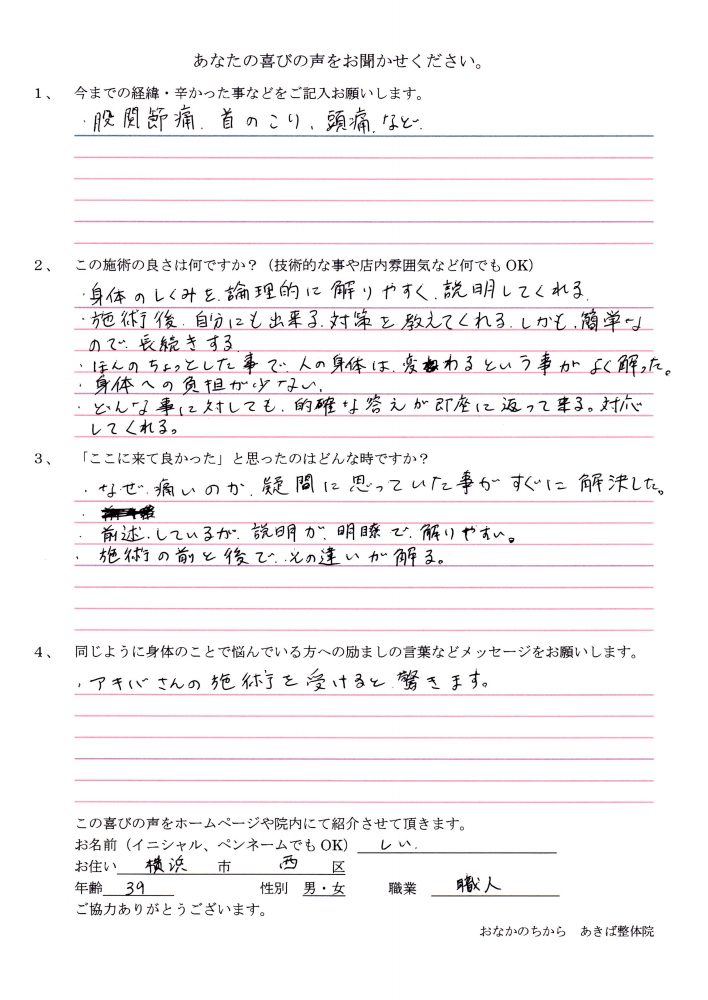 あなたの喜びの声をお聞かせください。
1、 今までの経緯・辛かった事などをご記入お願いします。
・股関節痛、首のこり、頭痛、など、
2、 この施術の良さは何ですか？（技術的な事や店内雰囲気など何でも OK）
・身体のしくみを、論理的に解りやすく、説明してくれる、
・施術後、自分にも出来る、対策を教えてくれる、しかも、簡単な
ので、長続きする、
・ほんのちょっとした事で、人の身体は、変わるという事がよく解った。
・身体への負担が少ない、
・どんな事に対しても、的確な答えが即座に返って来る。対応
してくれる。
3、 「ここに来て良かった」と思ったのはどんな時ですか？
・なぜ、痛いのか、疑問に思っていた事がすぐに解決した。
・
・前述、しているが、説明が、明瞭で、解りやすい。
・施術の前と後で、その違いが解る。
4、 同じように身体のことで悩んでいる方への励ましの言葉などメッセージをお願いします。
・アキバさんの施術を受けると、驚きます。
この喜びの声をホームページや院内にて紹介させて頂きます。
お名前（イニシャル、ペンネームでも OK） しい、
お住い 横浜 市 西 区
年齢 39 性別 男・女 職業 職人
ご協力ありがとうございます。
おなかのちから あきば整体院